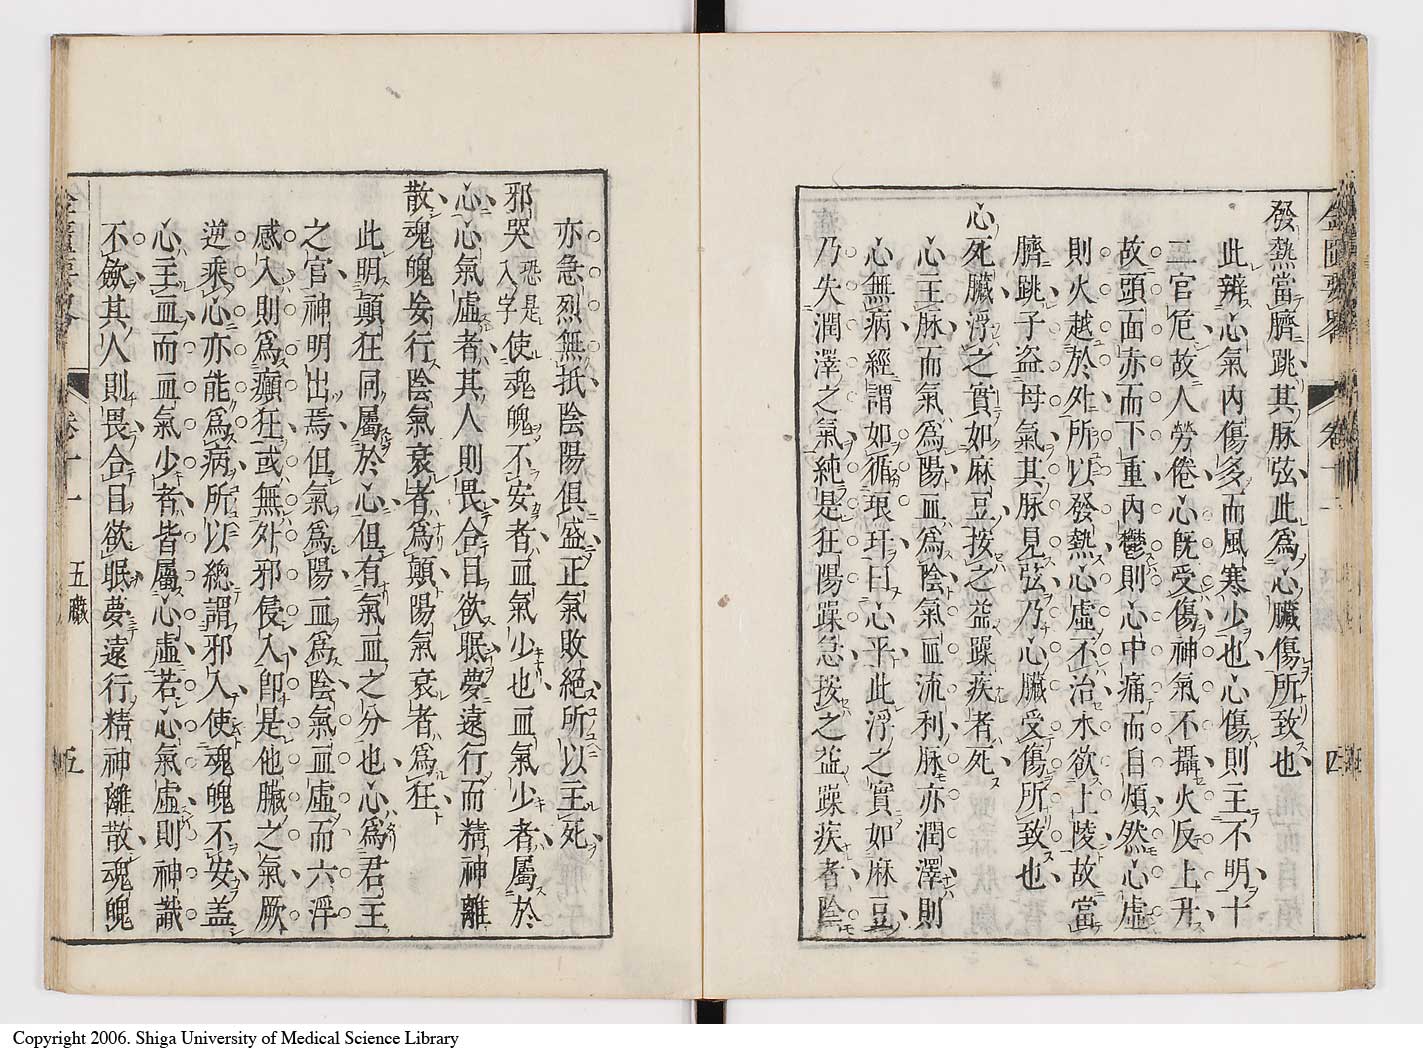 發熱當臍跳其脉弦此為心臟傷所致也
此辨心氣內傷多而風寒少也心傷則主不明十
二官危故人勞倦心既受傷神氣不攝火反上升
故頭面赤而下重內鬱則心中痛而自煩然心虛
則火越於外所以發熱心虛不治水欲上陵故當
臍跳子盜母氣其脉見弦乃心臟受傷所致也
心死臟浮之實如麻豆按之益躁疾者死
心主脉而氣為陽血為陰氣血流利脉亦潤澤則
心無病經謂如循琅玕曰心平此浮之實如麻豆
乃失潤澤之氣純是狂陽躁急按之益躁疾者陰
金匱要畧 卷十一 四
亦急烈無抵陰陽俱盛正氣敗絕所以主死
邪哭恐是入字使魂魄不安者血氣少也血氣少者屬於
心心氣虛者其人則畏合目欲眠夢遠行而精神離
散魂魄妄行陰氣衰者為顛陽氣衰者為狂
此明顛狂同屬於心但有氣血之分也心為君主
之官神明出焉但氣為陽血為陰氣血虛而六淫
感入則為癲狂或無外邪侵入卽是他臟之氣厥
逆乘心亦能為病所以總謂邪入使魂魄不安盖
心主血而血氣少者皆屬心虛若心氣虛則神識
不斂其人則畏合目欲眠夢遠行精神離散魂魄
卷十一 五臟 五
Copyright 2006. Shiga University of Medical Science Library